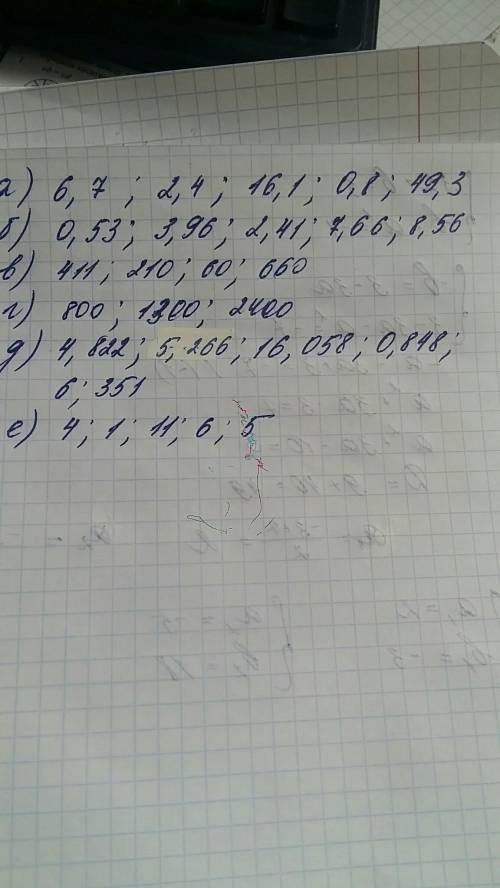 а) 6,7 ; 2,4 ; 16,1 ; 0,8 ; 49,3
б) 0,53 ; 3,96 ; 2,41 ; 7,66 ; 8,56
в) 411 ; 210 ; 60 ; 660
г) 800 ; 1200 ; 2400
д) 4,822 ; 5,266 ; 16,058 ; 0,848 ;
6 ; 351
е) 4 ; 1 ; 11 ; 6 ; 5